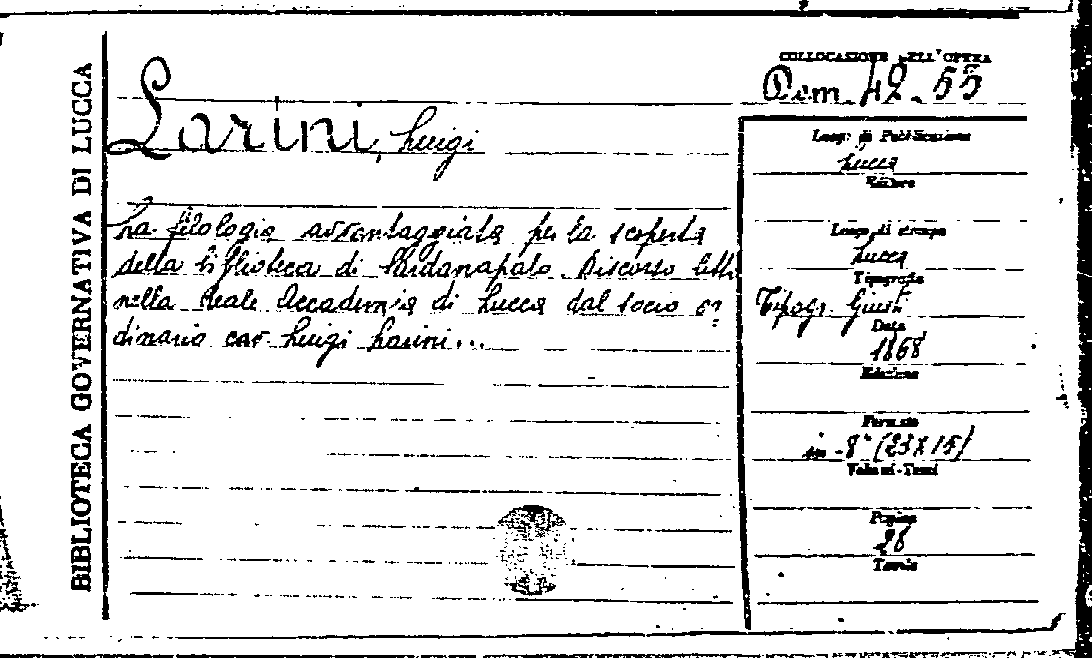 BIBLIOTECA GOVERNATIVA DI LUCCA
COLLOCAZIONE DELL'OPERA
Dom. 42. 55
Larini, Luigi
Luogo di Pubblicazione
Lucca
Editore
La filologia avvantaggiata per la scoperta
della biblioteca di Sardanapalo. Discorso letto
nella Reale Accademia di Lucca dal socio or=
dinario cav. Luigi Larini...
Luogo di stampa
Lucca
Tipografia
Tipogr. Giusti
Data
1868
Edizione
Formato
in-8° (23X15)
Volumi-Tomi
Pagine
28
Tavole